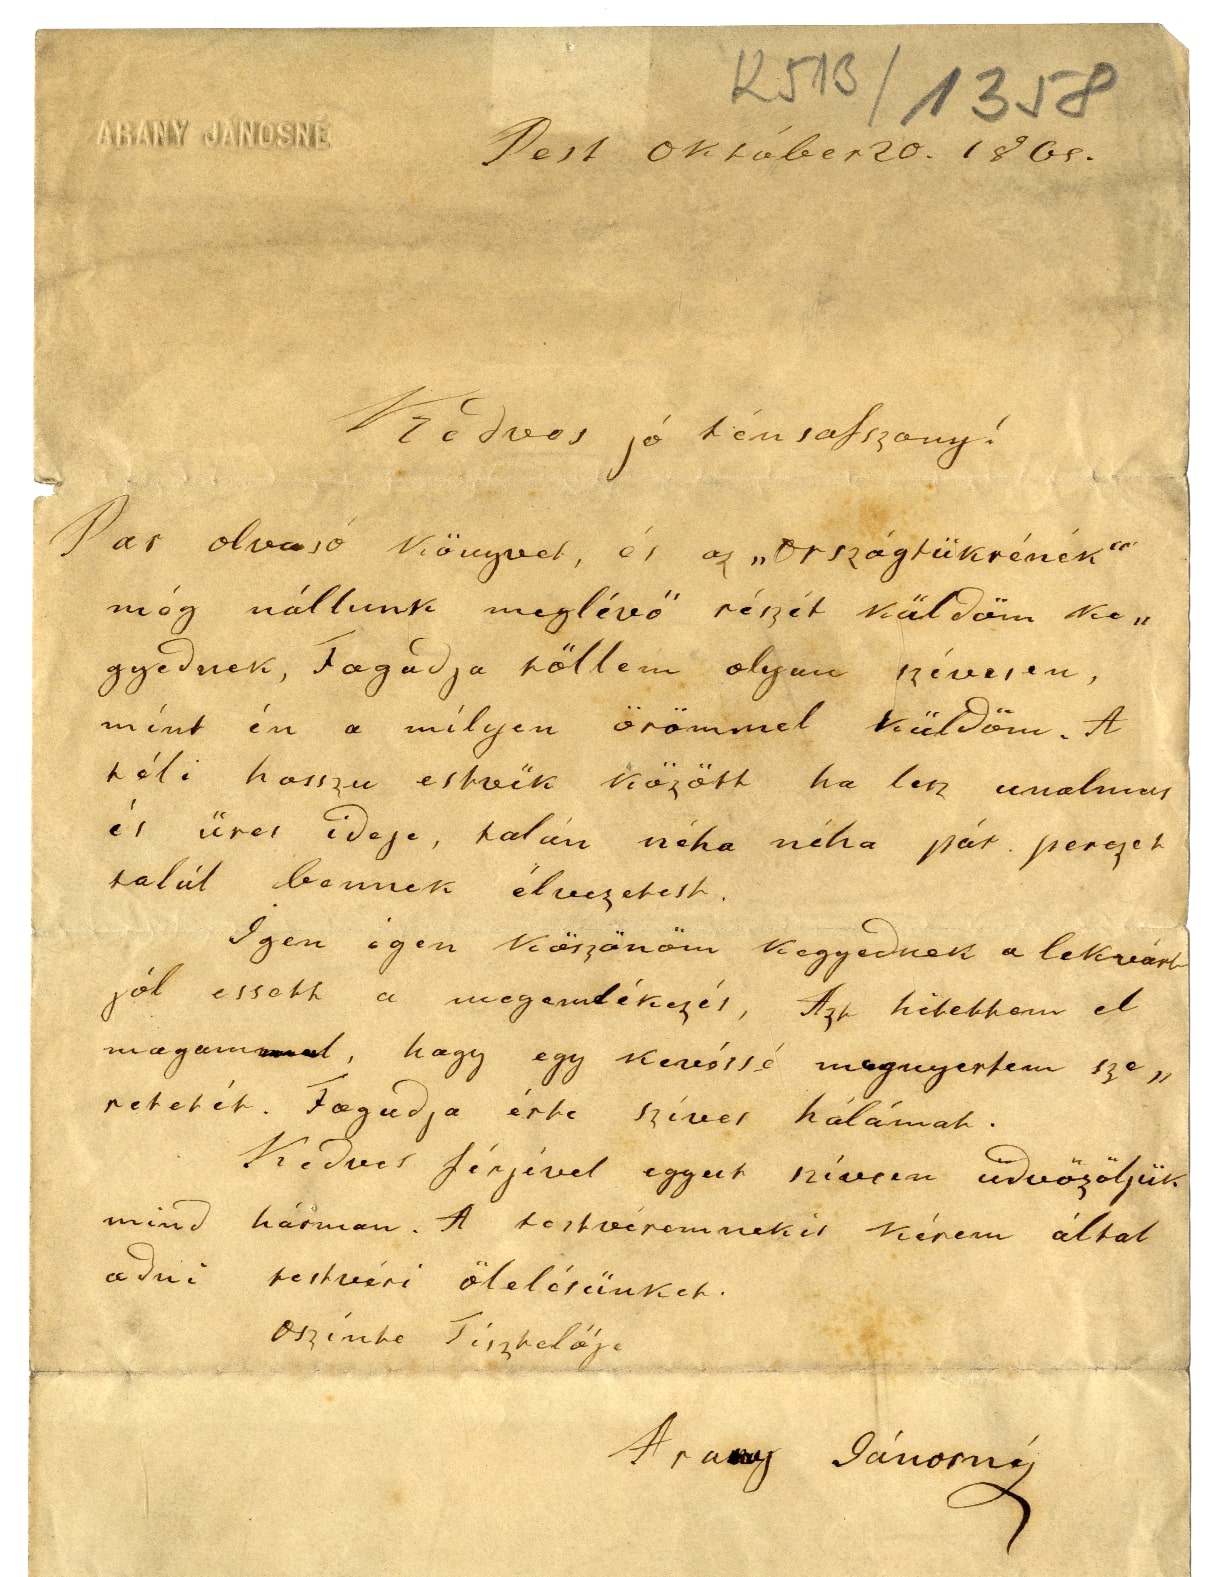 K513/1358
ARANY JÁNOSNÉ
Pest Október 20. 1865.
Kedves jó ténsaſszony!
Par olvasó Könyvet, és az „Országtükrének“
még nállunk meglévő részét küldöm ke„
gyednek, Fogadja töllem olyan szívesen,
mínt én a mílyen örömmel küldöm. A
téli hosszu estvék között ha lesz unalmas
és üres ideje, talán néha néha pár perczet
talál bennek élvezetest.
Igen igen köszönöm kegyednek a lekvárt
jól essett a megemlékezés, Azt hitettem el
magammal, hogy egy kevéssé megnyertem sze„
retetét. Fogadja érte szíves hálámat.
Kedves férjével eggyut szívesen üdvözöljük
mind hárman. A testvéremnekis kérem által
adni testvéri ölelésünket.
Oszínte Tísztelője
Arany Jánosné